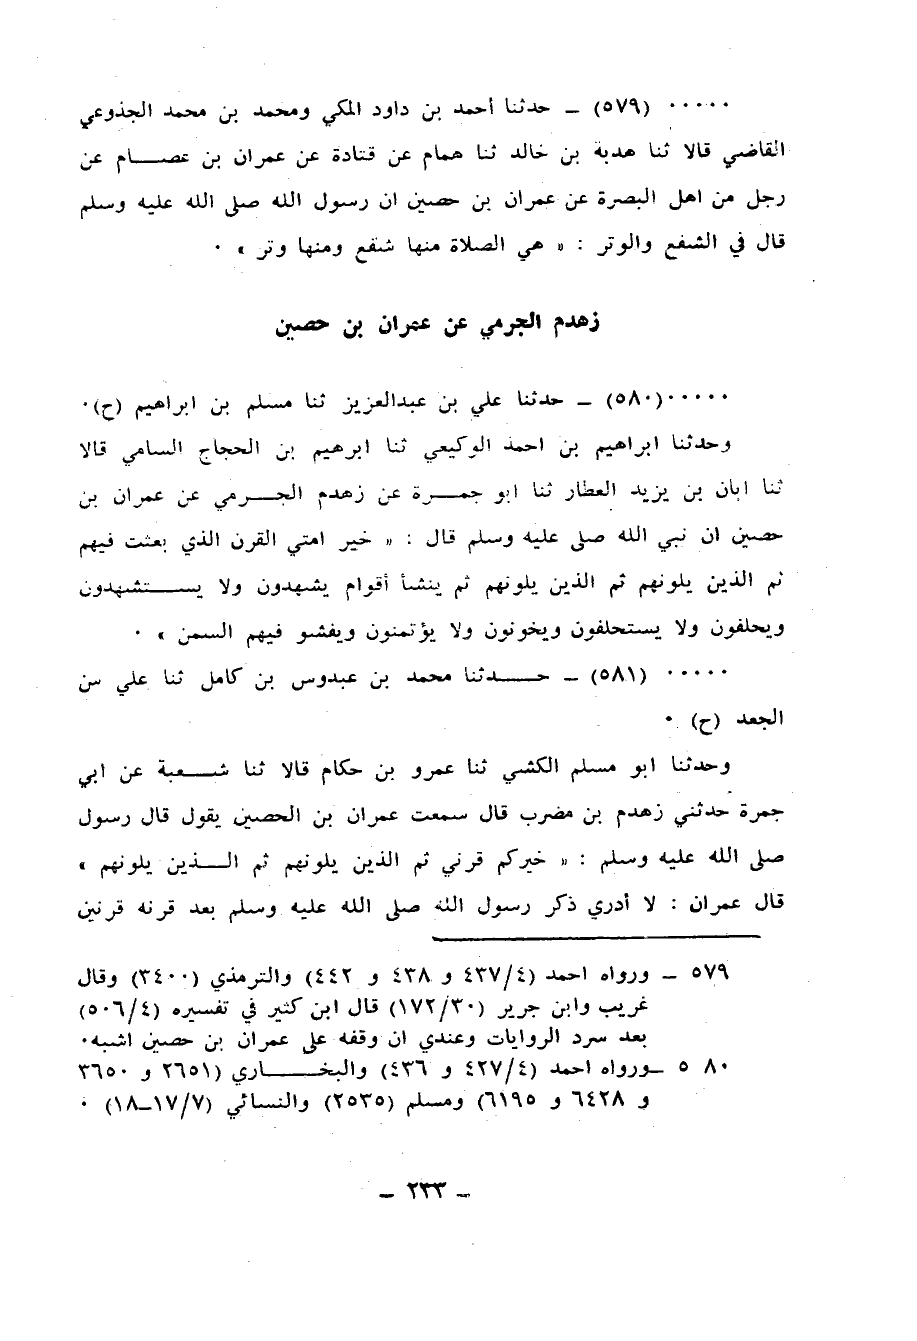 ٠٠٠٠٠ (٥٧٩) ــ حدثنا أحمد بن داود المكي ومحمد بن محمد الجذوعي
القاضي قالا ثنا هدبة بن خالد ثنا همام عن قتادة عن عمران بن عصــام عن
رجل من اهل البصرة عن عمران بن حصين ان رسول الله صلى الله عليه وسلم
قال في الشفع والوتر : « هي الصلاة منها شفع ومنها وتر » ٠
زهدم الجرمي عن عمران بن حصين
٠٠٠٠٠(٥٨٠) ــ حدثنا علي بن عبدالعزيز ثنا مسلم بن ابراهيم (ح)٠
وحدثنا ابراهيم بن احمد الوكيعي ثنا ابرهيم بن الحجاج السامي قالا
ثنا ابان بن يزيد العطار ثنا ابو جمــرة عن زهدم الجــرمي عن عمران بن
حصين ان نبي الله صلى عليه وسلم قال : « خير امتي القرن الذي بعثت فيهم
ثم الذين يلونهم ثم الذين يلونهم ثم ينشأ أقوام يشهدون ولا يســتشهدون
ويحلفون ولا يستحلفون ويخونون ولا يؤتمنون ويفشو فيهم السمن » ٠
٠٠٠٠٠ (٥٨١) ــ حــدثنا محمد بن عبدوس بن كامل ثنا علي سن
الجعد (ح) ٠
وحدثنا ابو مسلم الكشي ثنا عمرو بن حكام قالا ثنا شــعبة عن ابي
جمرة حدثني زهدم بن مضرب قال سمعت عمران بن الحصين يقول قال رسول
صلى الله عليه وسلم : « خيركم قرني ثم الذين يلونهم ثم الــذين يلونهم »
قال عمران : لا أدري ذكر رسول الله صلى الله عليه وسلم بعد قرنه قرنين
٥٧٩ ــ ورواه احمد (٤/٤٣٧ و ٤٣٨ و ٤٤٢) والترمذي (٣٤٠٠) وقال
غريب وابن جرير (٣٠/١٧٢) قال ابن كثير في تفسيره (٤/٥٠٦)
بعد سرد الروايات وعندي ان وقفه على عمران بن حصين اشبه٠
٥٨٠ ــورواه احمد (٤/٤٢٧ و ٤٣٦) والبخــاري (٢٦٥١ و ٣٦٥٠
و ٦٤٢٨ و ٦٦٩٥) ومسلم (٢٥٣٥) والنسائي (٧/١٧ــ١٨) ٠
ــ ٢٣٣ ــ